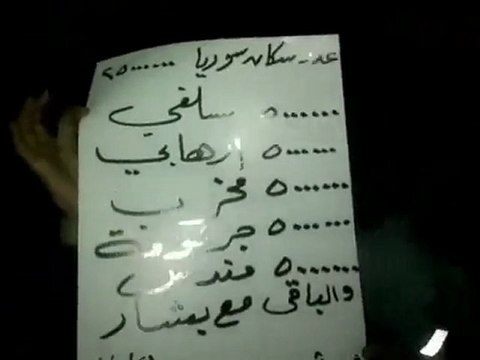 عدد سكان سوريا ٢٥٠٠٠٠٠٠
٥٠٠٠٠٠٠ سلفي
٥٠٠٠٠٠٠ إرهابي
٥٠٠٠٠٠٠ مخرب
٥٠٠٠٠٠٠ جرثومة
٥٠٠٠٠٠٠ مندس
والباقي مع بشار